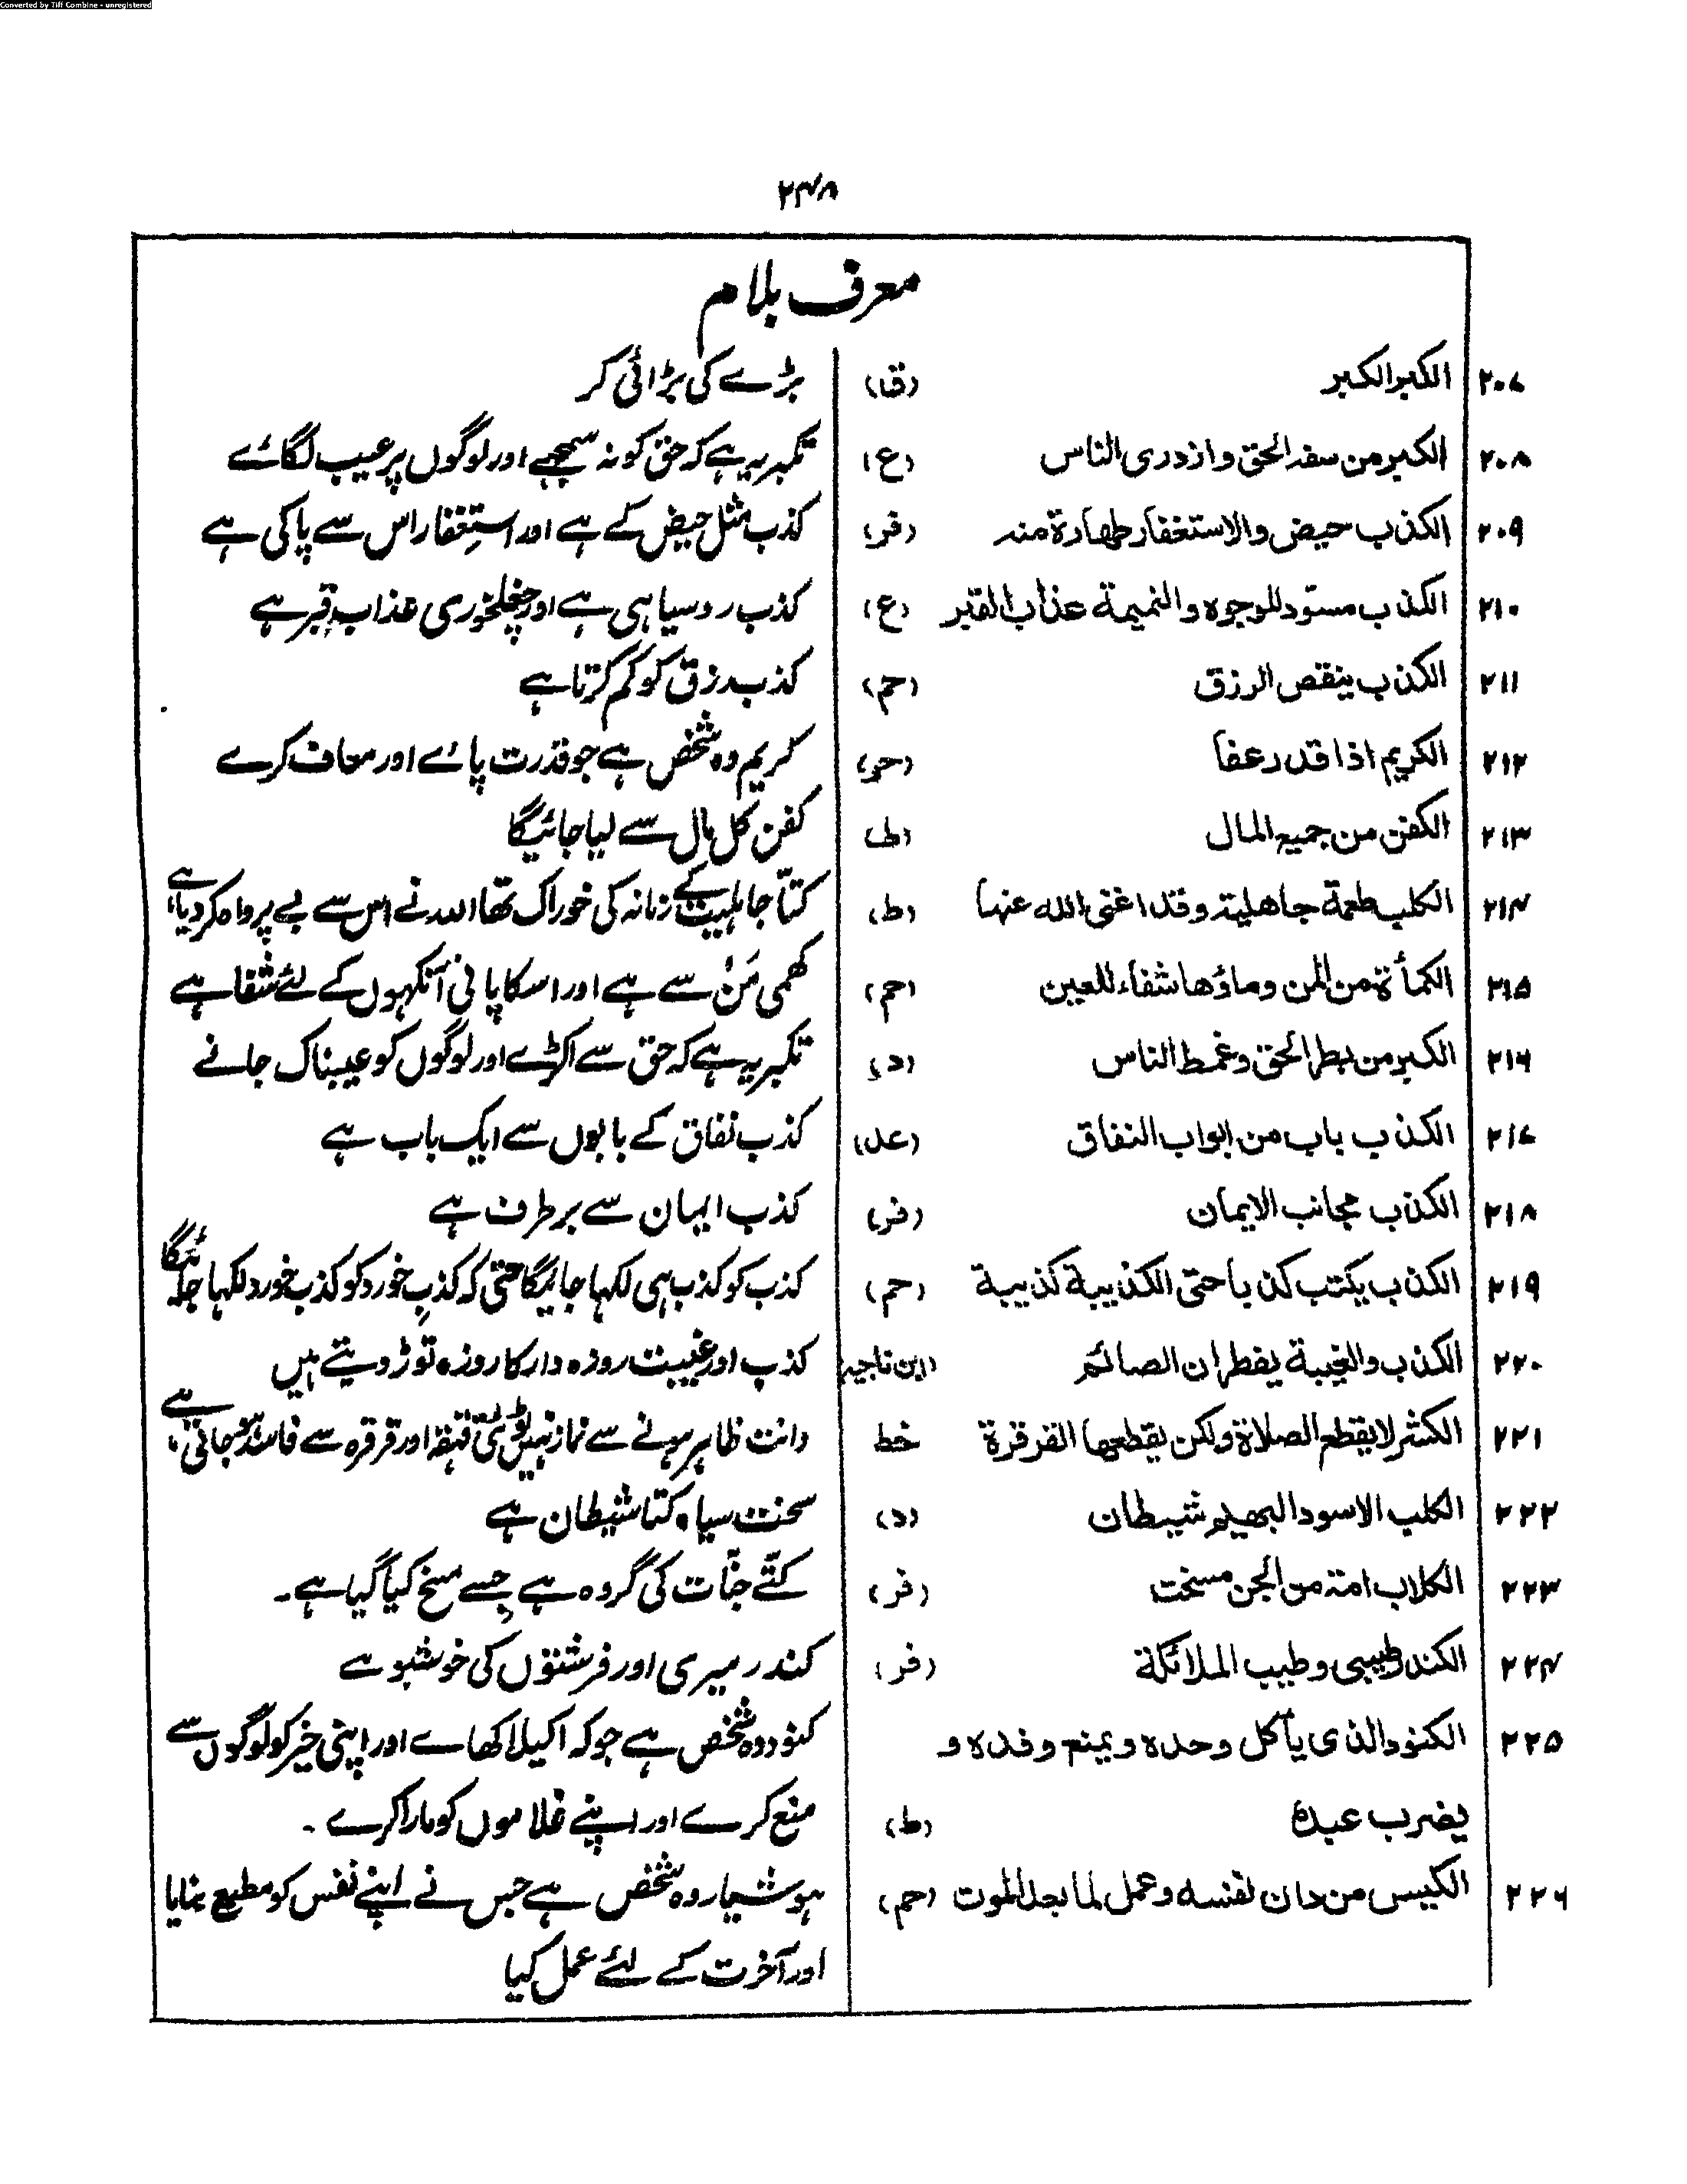 Converted by Tiff Combine - unregistered
۲۴۸
معرف بلام
۲۰۷ الکبر الکبر (ق) بڑے کی بڑائی کر
۲۰۸ الکبر من سفہ الحق وازدری الناس (ع) تکبر یہ ہے کہ حق کو نہ سمجھے اور لوگوں پر عیب لگائے
۲۰۹ الکذب حیض والاستغفار طهارة منه (فر) کذب مثل حیض کے ہے اور استِغفار اس سے پاکی ہے
۲۱۰ الکذب مسوّد للوجوه والنمیمة عذاب القبر (ع) کذب روسیاہی ہے اور چغلخوری عذاب قبر ہے
۲۱۱ الکذب ینقص الرزق (حم) کذب رزق کو کم کرتا ہے
۲۱۲ الکریم اذا قدر عفا (حم) کریم وہ شخص ہے جو قدرت پائے اور معاف کرے
۲۱۳ الکفن من جمیع المال (ط) کفن کل مال سے لیا جائیگا
۲۱۴ الکلب طعمة جاهلیة وقد اغنی الله عنها (ط) کتّا جاہلیت کے زمانہ کی خوراک تھا اللہ نے اس سے بے پرواہ کر دیا ہے
۲۱۵ الکمأة من المن وماؤها شفاء للعین (حم) کھمی مَنْ سے ہے اور اسکا پانی آنکہوں کے لئے شفا ہے
۲۱۶ الکبر من بطر الحق وغمط الناس (د) تکبر یہ ہے کہ حق سے اکڑے اور لوگوں کو عیبناک جانے
۲۱۷ الکذب باب من ابواب النفاق (عل) کذب نفاق کے بابوں سے ایک باب ہے
۲۱۸ الکذب مجانب الایمان (فر) کذب ایمان سے برطرف ہے
۲۱۹ الکذب یکتب کذبا حتی الکذیبة کذیبة (حم) کذب کو کذب ہی لکہا جائیگا حتی کہ کذبِ خورد کو کذب خورد لکہا جائیگا
۲۲۰ الکذب والغیبة یفطران الصائم (ابن ناجیہ) کذب اور غیبت روزہ دار کا روزہ توڑ دیتے ہیں
۲۲۱ الکشر لا یقطع الصلاة ولکن یقطعها القرقرة خط دانت ظاہر ہونے سے نماز نہیں ٹوٹتی قہقہہ اور قرقرہ سے فاسد ہو جاتی ہے
۲۲۲ الکلب الاسود البهیم شیطان (د) سخت سیاہ کتا شیطان ہے
۲۲۳ الکلاب امة من الجن مسخت (فر) کتّے جنّات کی گروہ ہے جِسے مسخ کیا گیا ہے۔
۲۲۴ الکندر طیبی وطیب الملائکة (فر) کندر میری اور فرشتوں کی خوشبو ہے
۲۲۵ الکنود الذی یأکل وحده ویمنع رفده و کنود وہ شخص ہے جو کہ اکیلا کھاے اور اپنی خیر کو لوگوں سے
یضرب عبده (ط) منع کرے اور اپنے غلاموں کو مارا کرے ۔
۲۲۶ الکیس من دان نفسه وعمل لما بعد الموت (حم) ہوشیار وہ شخص ہے جس نے اپنے نفس کو مطیع بنایا
اور آخرت کے لئے عمل کیا